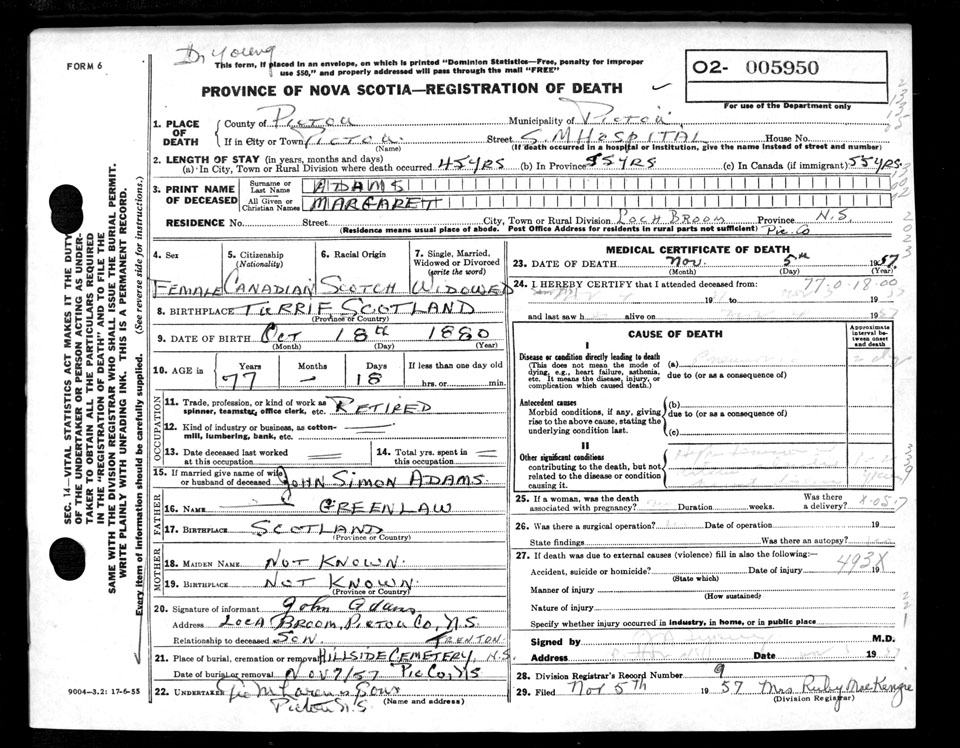 Dr Young
FORM 6
This form, if placed in an envelope, on which is printed "Dominion Statistics—Free, penalty for improper
use $50," and properly addressed will pass through the mail "FREE"
O2- 005950
For use of the Department only
PROVINCE OF NOVA SCOTIA—REGISTRATION OF DEATH
1. PLACE OF DEATH
County of Pictou Municipality of Pictou
If in City or Town Pictou Street S.M HOSPITAL House No.
(Name) (If death occurred in a hospital or institution, give the name instead of street and number)
2. LENGTH OF STAY (in years, months and days)
(a) In City, Town or Rural Division where death occurred 45 YRS (b) In Province 55 YRS (c) In Canada (if immigrant) 55 YRS
3. PRINT NAME OF DECEASED
Surname or Last Name ADAMS
All Given or Christian Names MARGARET
RESIDENCE No. Street City, Town or Rural Division LOCH BROOM Province N.S.
(Residence means usual place of abode. Post Office Address for residents in rural parts not sufficient) Pic. Co
4. Sex 5. Citizenship (Nationality) 6. Racial Origin 7. Single, Married, Widowed or Divorced (write the word)
FEMALE CANADIAN SCOTCH WIDOWED
8. BIRTHPLACE TURRIE SCOTLAND
(Province or Country)
9. DATE OF BIRTH Oct 18th 1880
(Month) (Day) (Year)
10. AGE in Years Months Days If less than one day old
77 – 18 hrs. or min.
OCCUPATION
11. Trade, profession, or kind of work as spinner, teamster, office clerk, etc. RETIRED
12. Kind of industry or business, as cotton-mill, lumbering, bank, etc.
13. Date deceased last worked at this occupation
14. Total yrs. spent in this occupation
15. If married give name of wife or husband of deceased JOHN SIMON ADAMS
FATHER
16. Name GREENLAW
17. Birthplace SCOTLAND
(Province or Country)
MOTHER
18. MAIDEN NAME NOT KNOWN
19. BIRTHPLACE NOT KNOWN
(Province or Country)
20. Signature of informant John Adams
Address LOCH BROOM, PICTOU CO, N.S.
Relationship to deceased SON TRENTON
21. Place of burial, cremation or removal HILLSIDE CEMETERY, N.S.
Date of burial or removal NOV 7/57 PIC CO, NS
22. UNDERTAKER
Pictou N.S. (Name and address)
MEDICAL CERTIFICATE OF DEATH
23. DATE OF DEATH Nov. 5th 1957
(Month) (Day) (Year)
24. I HEREBY CERTIFY that I attended deceased from: 77-0-18-00
19 to 19
and last saw h alive on 1957
CAUSE OF DEATH
Approximate interval between onset and death
I
Disease or condition directly leading to death (a)
(This does not mean the mode of dying, e.g., heart failure, asthenia, etc. It means the disease, injury, or complication which caused death.)
due to (or as a consequence of)
Antecedent causes (b)
Morbid conditions, if any, giving rise to the above cause, stating the underlying condition last.
due to (or as a consequence of)
(c)
II
Other significant conditions
contributing to the death, but not related to the disease or condition causing it.
25. If a woman, was the death associated with pregnancy? Duration weeks. Was there a delivery?
26. Was there a surgical operation? Date of operation 19
State findings Was there an autopsy?
27. If death was due to external causes (violence) fill in also the following:—
Accident, suicide or homicide? Date of injury 19
(State which) 493X
Manner of injury
(How sustained)
Nature of injury
Specify whether injury occurred in industry, in home, or in public place
Signed by M.D.
Address Date 1957
28. Division Registrar's Record Number 9
29. Filed Nov 5th 1957 Mrs Ruby MacKenzie
(Division Registrar)
9004—3.2: 17-6-55
SEC. 14—VITAL STATISTICS ACT MAKES IT THE DUTY
OF THE UNDERTAKER OR PERSON ACTING AS UNDER-
TAKER TO OBTAIN ALL THE PARTICULARS REQUIRED
IN THE "REGISTRATION OF DEATH" AND TO FILE THE
SAME WITH THE DIVISION REGISTRAR WHO SHALL ISSUE THE BURIAL PERMIT.
WRITE PLAINLY WITH UNFADING INK. THIS IS A PERMANENT RECORD.
Every item of information should be carefully supplied. (See reverse side for instructions.)